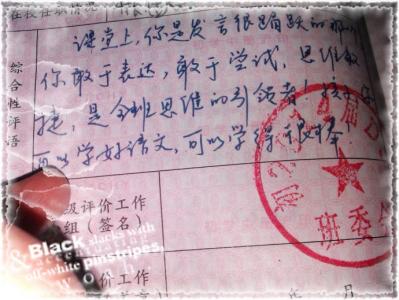 在校任职情况
综合性评语
课堂上，你是发言很踊跃的那个
你敢于表达，敢于尝试，思维敏
捷，是全班思维的引领者！孩子，你
可以学好语文，可以学得很棒
级评价工作
组（签名）
班委会
价工作
年 月
&Black slacks with
off-white pinstripes,